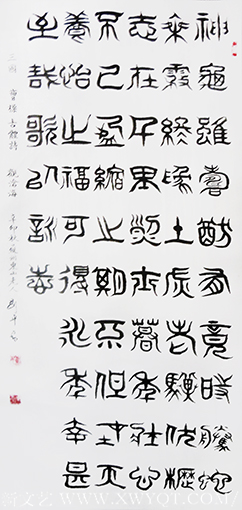 神龜雖壽猶有竟時騰蛇
乘霧終為土灰老驥伏櫪
志在千里烈士暮年壯心
不已盈縮之期不但在天
養怡之福可得永年幸甚
至哉歌以詠志
三國 曹操 詩 觀滄海 辛卯秋
新文艺 WWW.XWYQT.COM